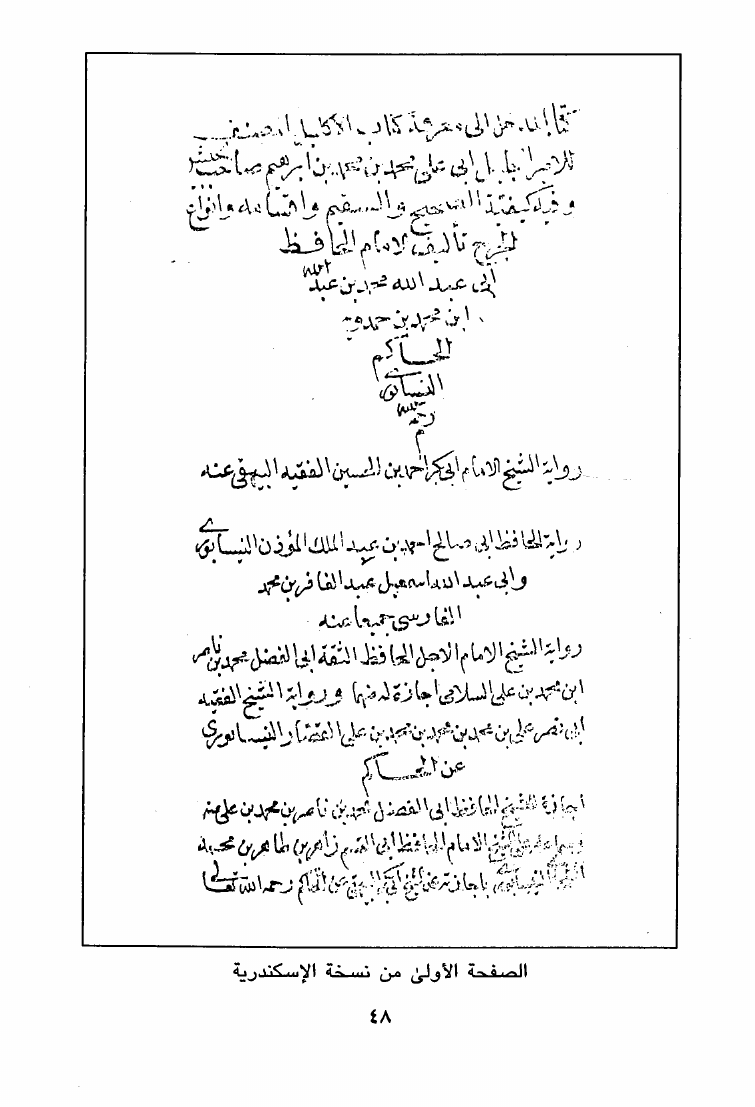 كتاب المدخل الى معرفة كتاب الاكليل المصنف
للامير ابى على محمد بن محمد بن ابرهيم صاحب جيش
وفيه كيفية الصحيح والسقيم واقسامه وانواع
الجرح تأليف الامام الحافظ
ابى عبد الله محمد بن عبد الله
ابن محمد بن حمدويه
الحاكم
النيسابورى
رحمه الله
م
رواية الشيخ الامام ابى بكر احمد بن الحسين الفقيه البيهقى عنه
رواية الحافظ ابى صالح احمد بن عبد الملك المؤذن النيسابورى
وابى عبد الله اسمعيل عبد الغافر بن محمد
الفارسى جميعا عنه
رواية الشيخ الامام الاجل الحافظ الثقة ابى الفضل محمد بن ناصر
ابن محمد بن على السلامى اجازة له منهما ورواية الشيخ الفقيه
ابى نصر على بن محمد بن محمد بن محمد بن على النيسابورى
عن الحاكم
اجازة للشيخ الحافظ ابى الفضل محمد بن ناصر بن محمد بن على منه
الشيخ الامام الحافظ ابى القسم زاهر بن طاهر بن محمد
باجازته عن الشيخ ابى بكر البيهقى عن الحاكم رحمه الله تعالى
الصفحة الأولىٰ من نسخة الإسكندرية
٤٨